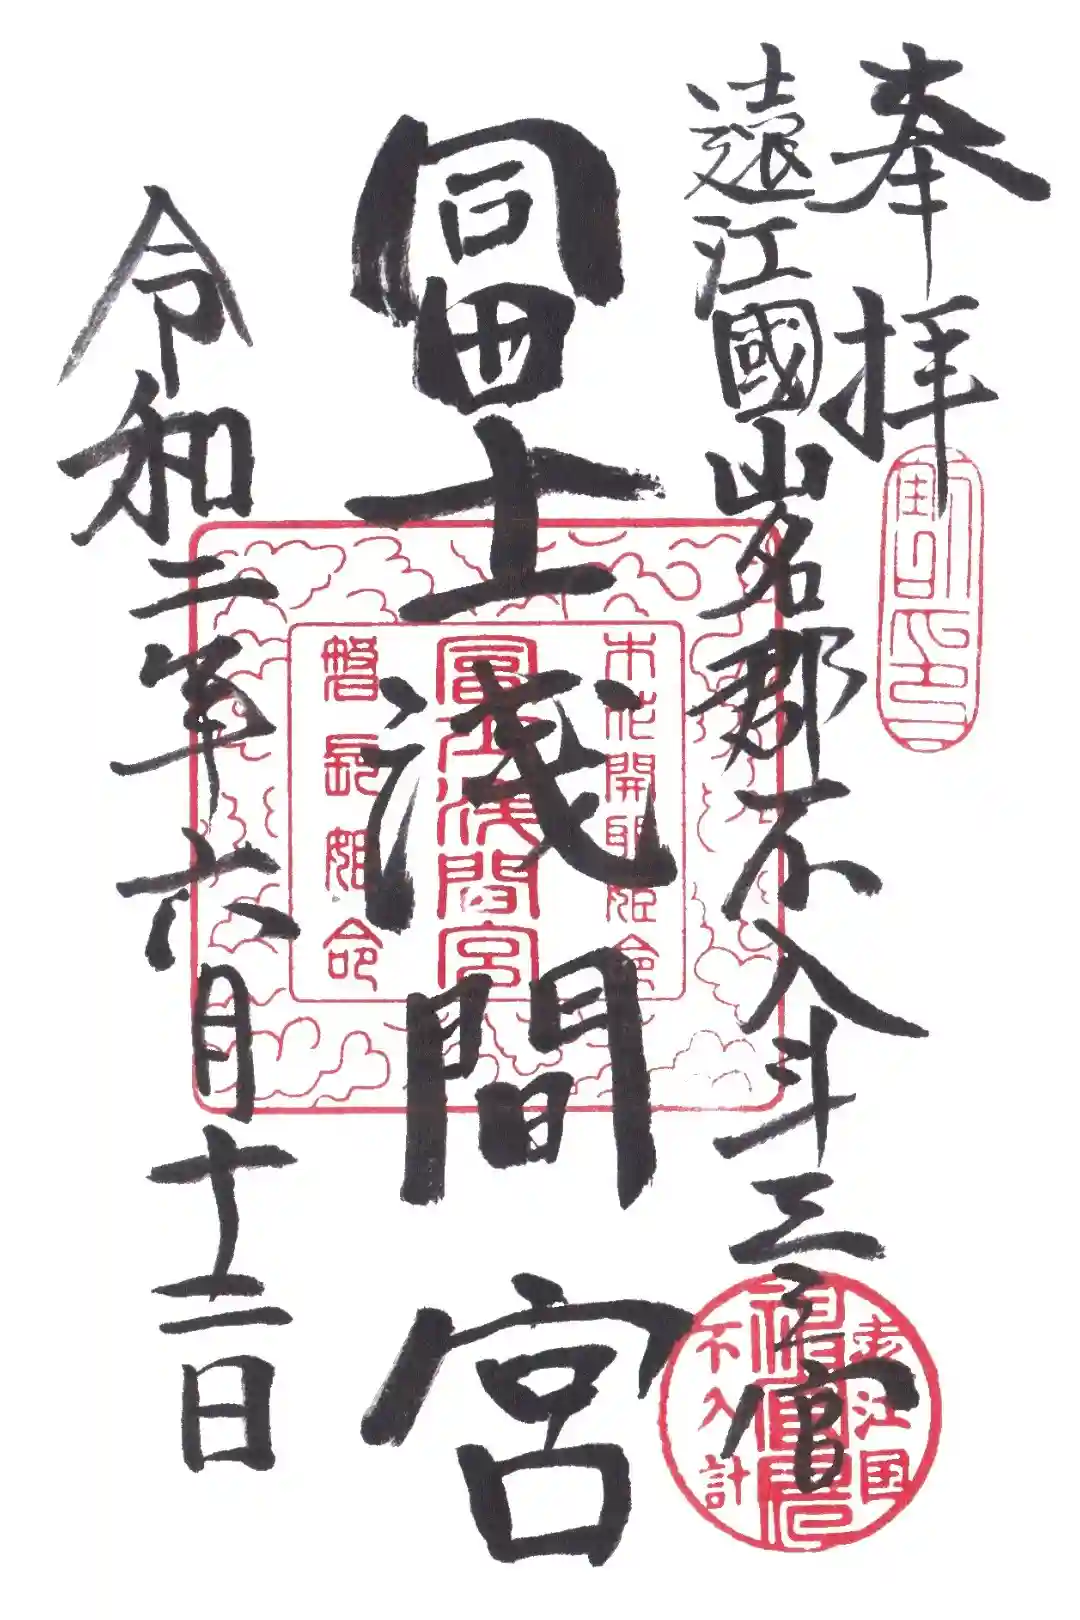 奉拝
遠江國山名郡不入斗三宮
冨士淺間宮
令和二年六月十二日
木花開耶姫命
冨士浅間宮
磐長姫命
遠江国
不入計